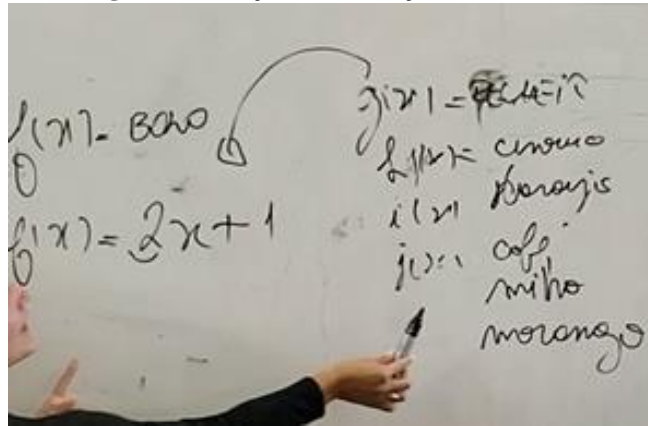 f(x) = BOLO
f(x) = 2x + 1
g(x) =
h(x) =
i(x) laranja
j(x) = café
milho
morango